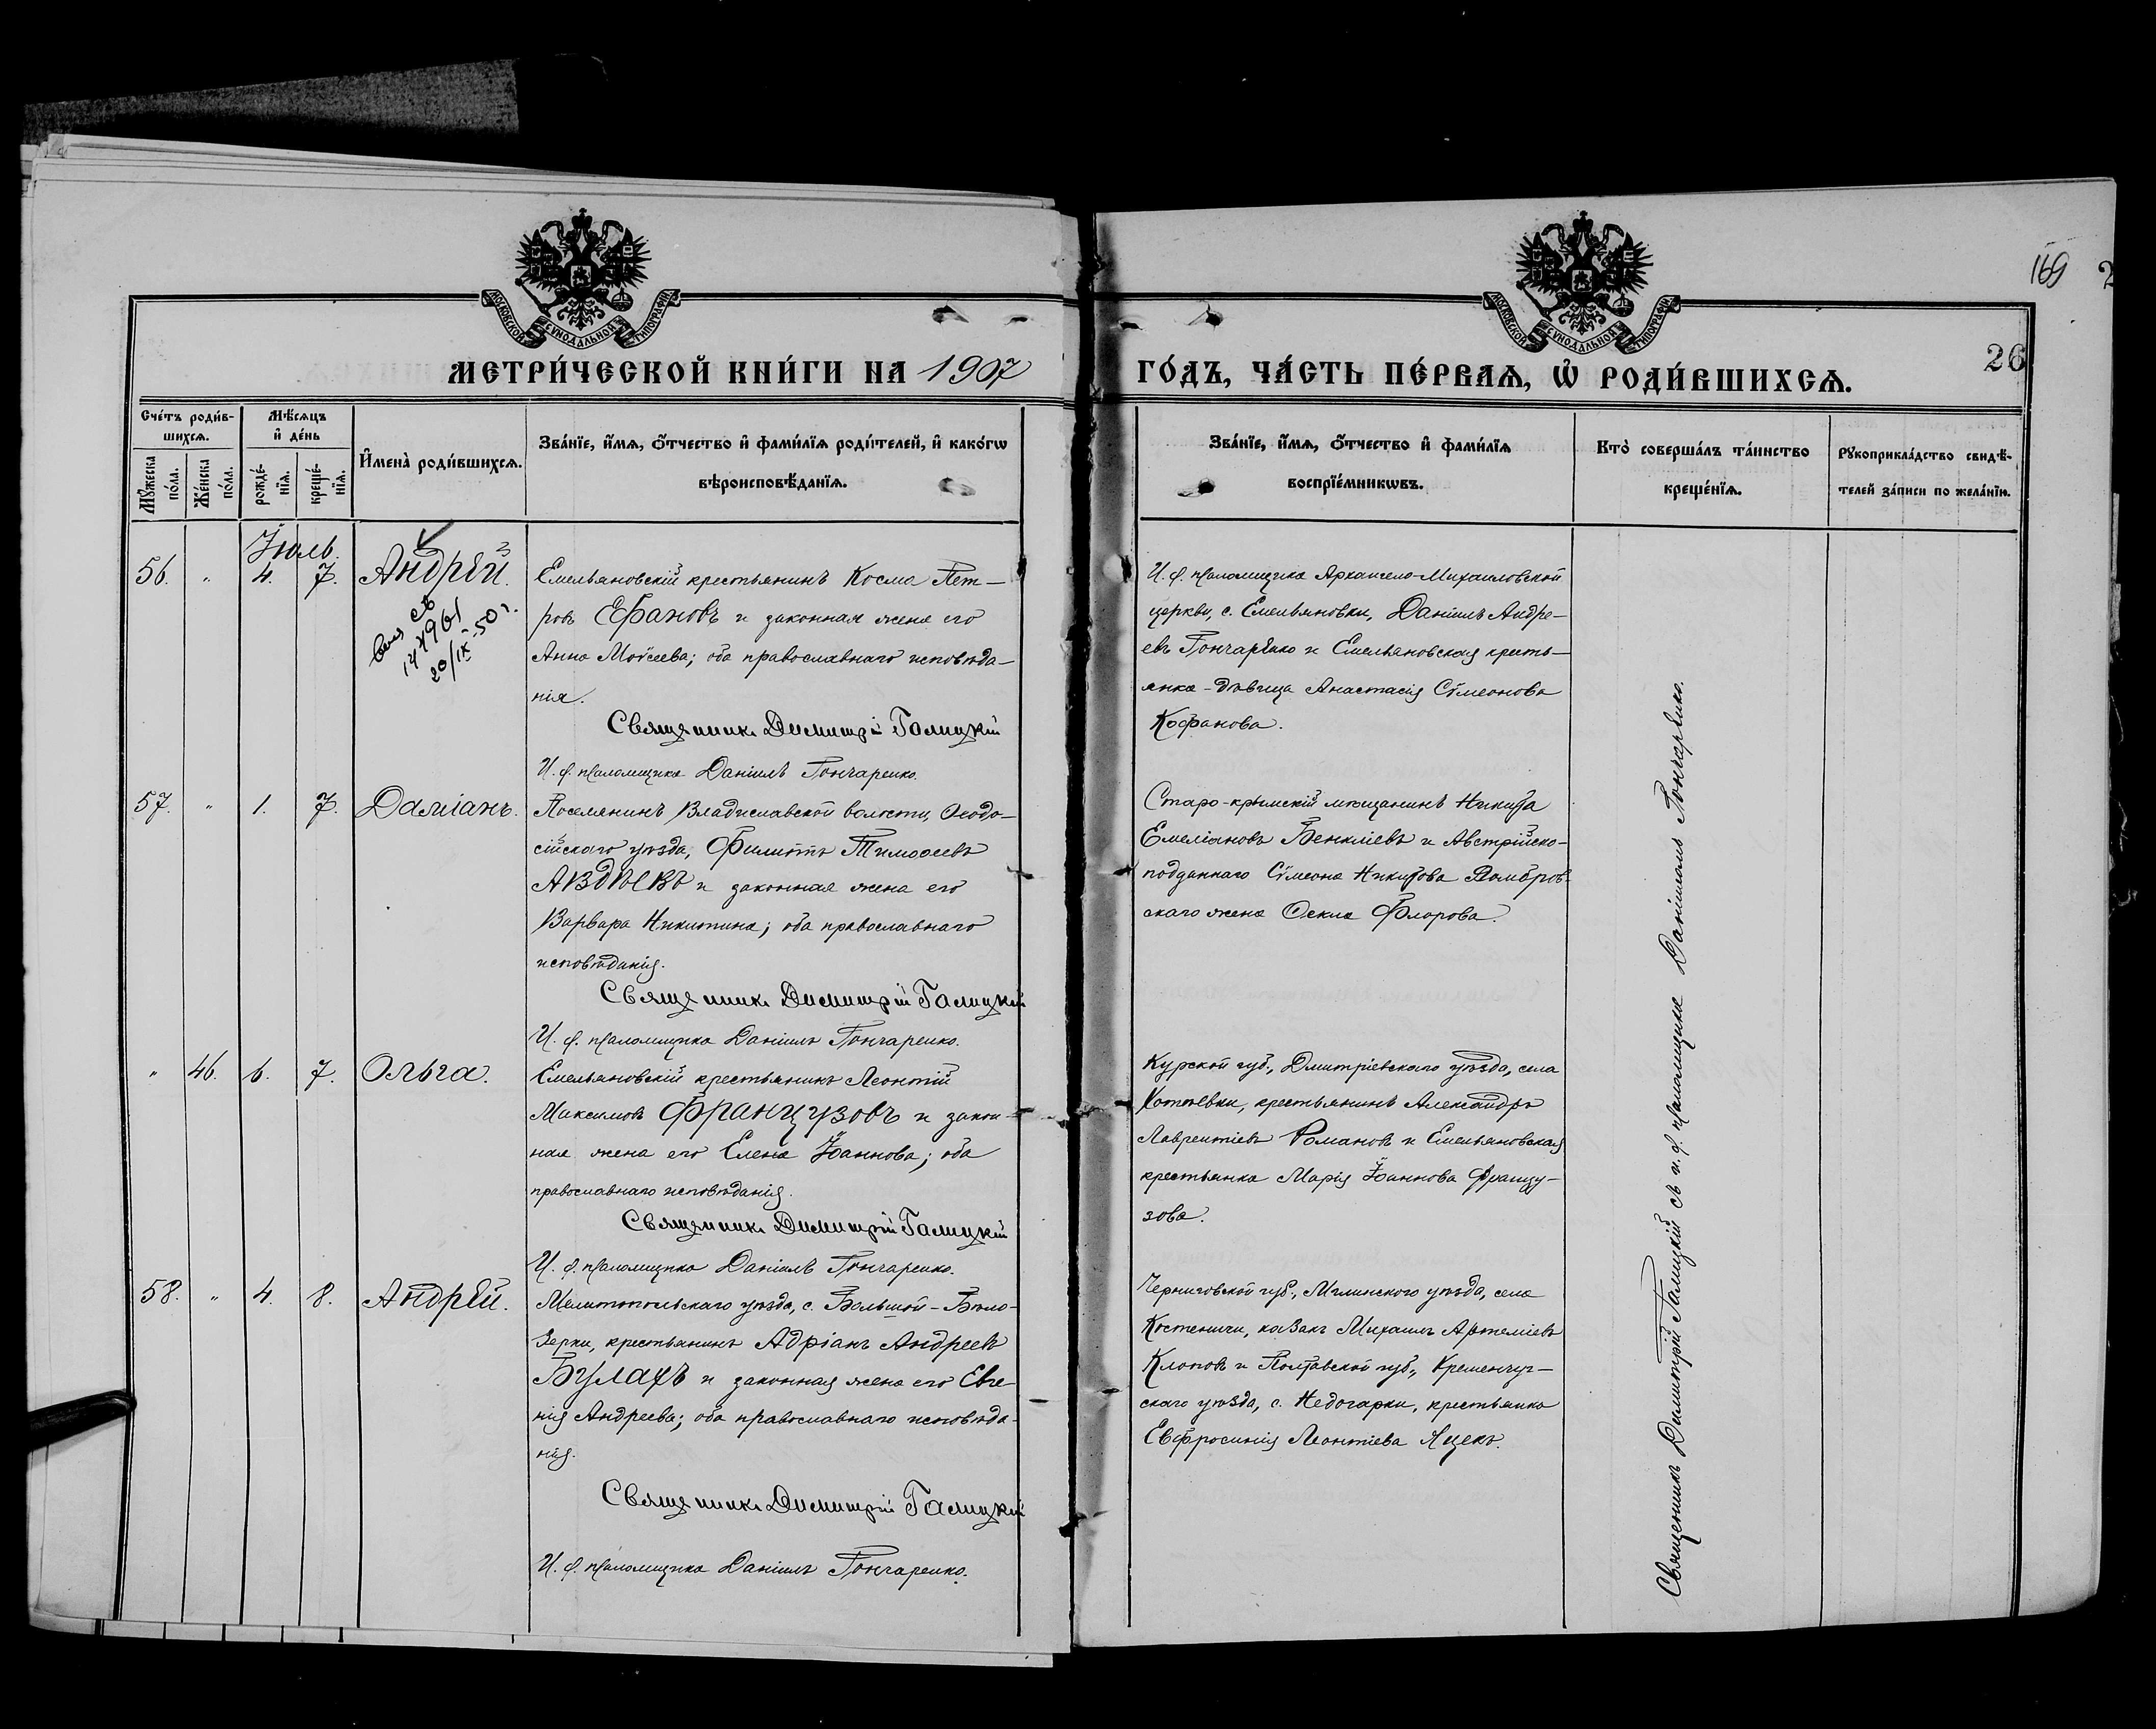 169
2
26
МОСКОВСКОЙ СѴНОДАЛЬНОЙ ТИПОГРАФІИ
МОСКОВСКОЙ СѴНОДАЛЬНОЙ ТИПОГРАФІИ
МЕТРИ́ЧЕСКОЙ КНИ́ГИ НА 1907
ГО́ДЪ, ЧА́СТЬ ПЕ́РВАѦ, Ѡ҆ РОДИ́ВШИХСѦ.
Сче́тъ роди́в-
шихсѧ.
Мѣ́сѧцъ
и҆ де́нь
Мꙋ́жеска
по́ла.
Же́нска
по́ла.
рожде́-
нїѧ.
креще́-
нїѧ.
И҆мена̀ роди́вшихсѧ.
Зва́нїе, и҆́мѧ, ѻ҆́тчество и҆ фами́лїѧ роди́телей, и҆ како́гѡ
вѣроисповѣ́данїѧ.
Зва́нїе, и҆́мѧ, ѻ҆́тчество и҆ фами́лїѧ
воспрїе́мникѡвъ.
Кто̀ соверша́лъ та́инство
креще́нїѧ.
Рꙋкоприкла́дство свидѣ́-
телей за́писи по жела́нїю.
Іюль.
56. " 4. 7. Андрей.
20/IX-50 г.
Емельяновскій крестьянинъ Косма Пет-
ровъ Ефановъ и законная жена его
Анна Моѵсеева; оба православнаго исповѣда-
нія.
Священникъ Димитрій Галицкій
И. ф. псаломщика Даніилъ Гончаренко.
И. ф. псаломщика Архангело-Михаиловской
церкви, с. Емельяновки, Даніилъ Андре-
евъ Гончаренко и Емельяновская кресть-
янка-дѣвица Анастасія Сѵмеонова
Кофанова.
57. " 1. 7. Даміанъ.
Поселянинъ Владиславской волости, Ѳеодо-
сійскаго уѣзда, Филиппъ Тимоѳеевъ
Авдѣевъ и законная жена его
Варвара Никитина; оба православнаго
исповѣданія.
Священникъ Димитрій Галицкій
И. ф. псаломщика Даніилъ Гончаренко.
Старо-крымскій мѣщанинъ Никита
Емеліановъ и Австрійско-
подданнаго Сѵмеона Никитова
скаго жена Ѳекла Флорова.
" 46. 6. 7. Ольга.
Емельяновскій крестьянинъ Леонтій
Максимовъ Французовъ и закон-
ная жена его Елена Іоаннова; оба
православнаго исповѣданія.
Священникъ Димитрій Галицкій
И. ф. псаломщика Даніилъ Гончаренко.
Курской губ., Дмитріевскаго уѣзда, села
крестьянинъ Александръ
Лаврентіевъ Романовъ и Емельяновская
крестьянка Марія Іоаннова Францу-
зова.
58. " 4. 8. Андрей.
Мелитопольскаго уѣзда, с. Большой-Бѣло-
зерки, крестьянинъ Адріанъ Андреевъ
Булахъ и законная жена его Евге-
нія Андреева; оба православнаго исповѣда-
нія.
Священникъ Димитрій Галицкій
И. ф. псаломщика Даніилъ Гончаренко.
Черниговской губ., Мглинскаго уѣзда, села
Костеничи, козакъ Михаилъ Артеміевъ
Клоповъ и Полтавской губ., Кременчуг-
скаго уѣзда, с. Недогарки, крестьянка
Евфросинія Леонтіева Яцекъ.
Священникъ Димитрій Галицкій съ и. ф. псаломщика Даніиломъ Гончаренко.